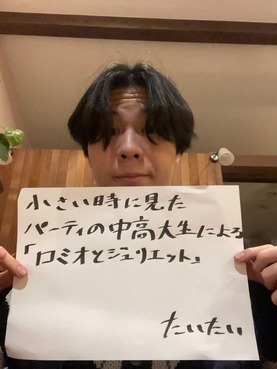 小さい時に見た
パーティの中高大生による
「ロミオとジュリエット」
たいたい